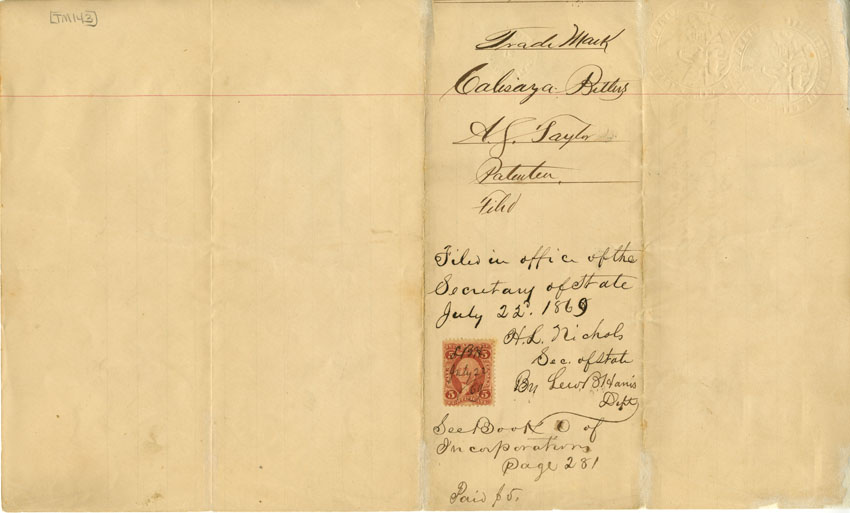 [TM143]
Trade Mark
Calisaya Bitters
A. J. Taylor
Patentee.
Filed
Filed in office of the
Secretary of State
July 22d. 1869
H. L. Nichols
Sec. of State
By Lew B. Harris
Dept
5 5
July
5 5
See Book of
Incorporations
page 281
Paid $5.